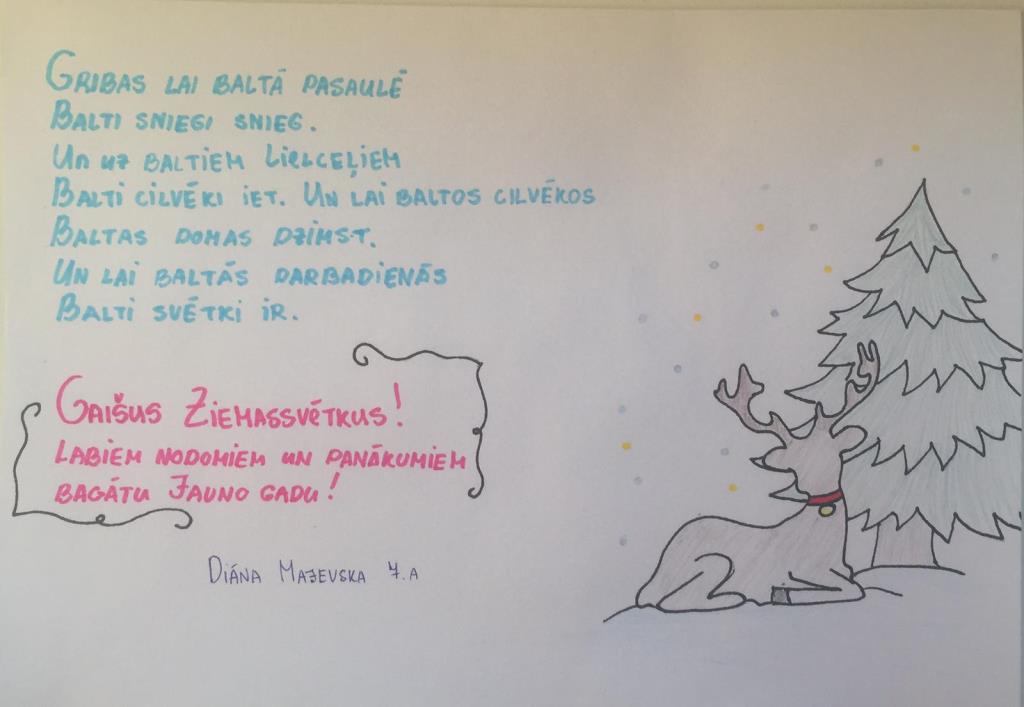 Gribas lai baltā pasaulē
Balti sniegi snieg.
Un uz baltiem Lielceļiem
Balti cilvēki iet. Un lai baltos cilvēkos
Baltas domas dzimst.
Un lai baltās darbadienās
Balti svētki ir.
Gaišus Ziemassvētkus!
Labiem nodomiem un panākumiem
bagātu Jauno gadu!
Diāna Majevska 7.a